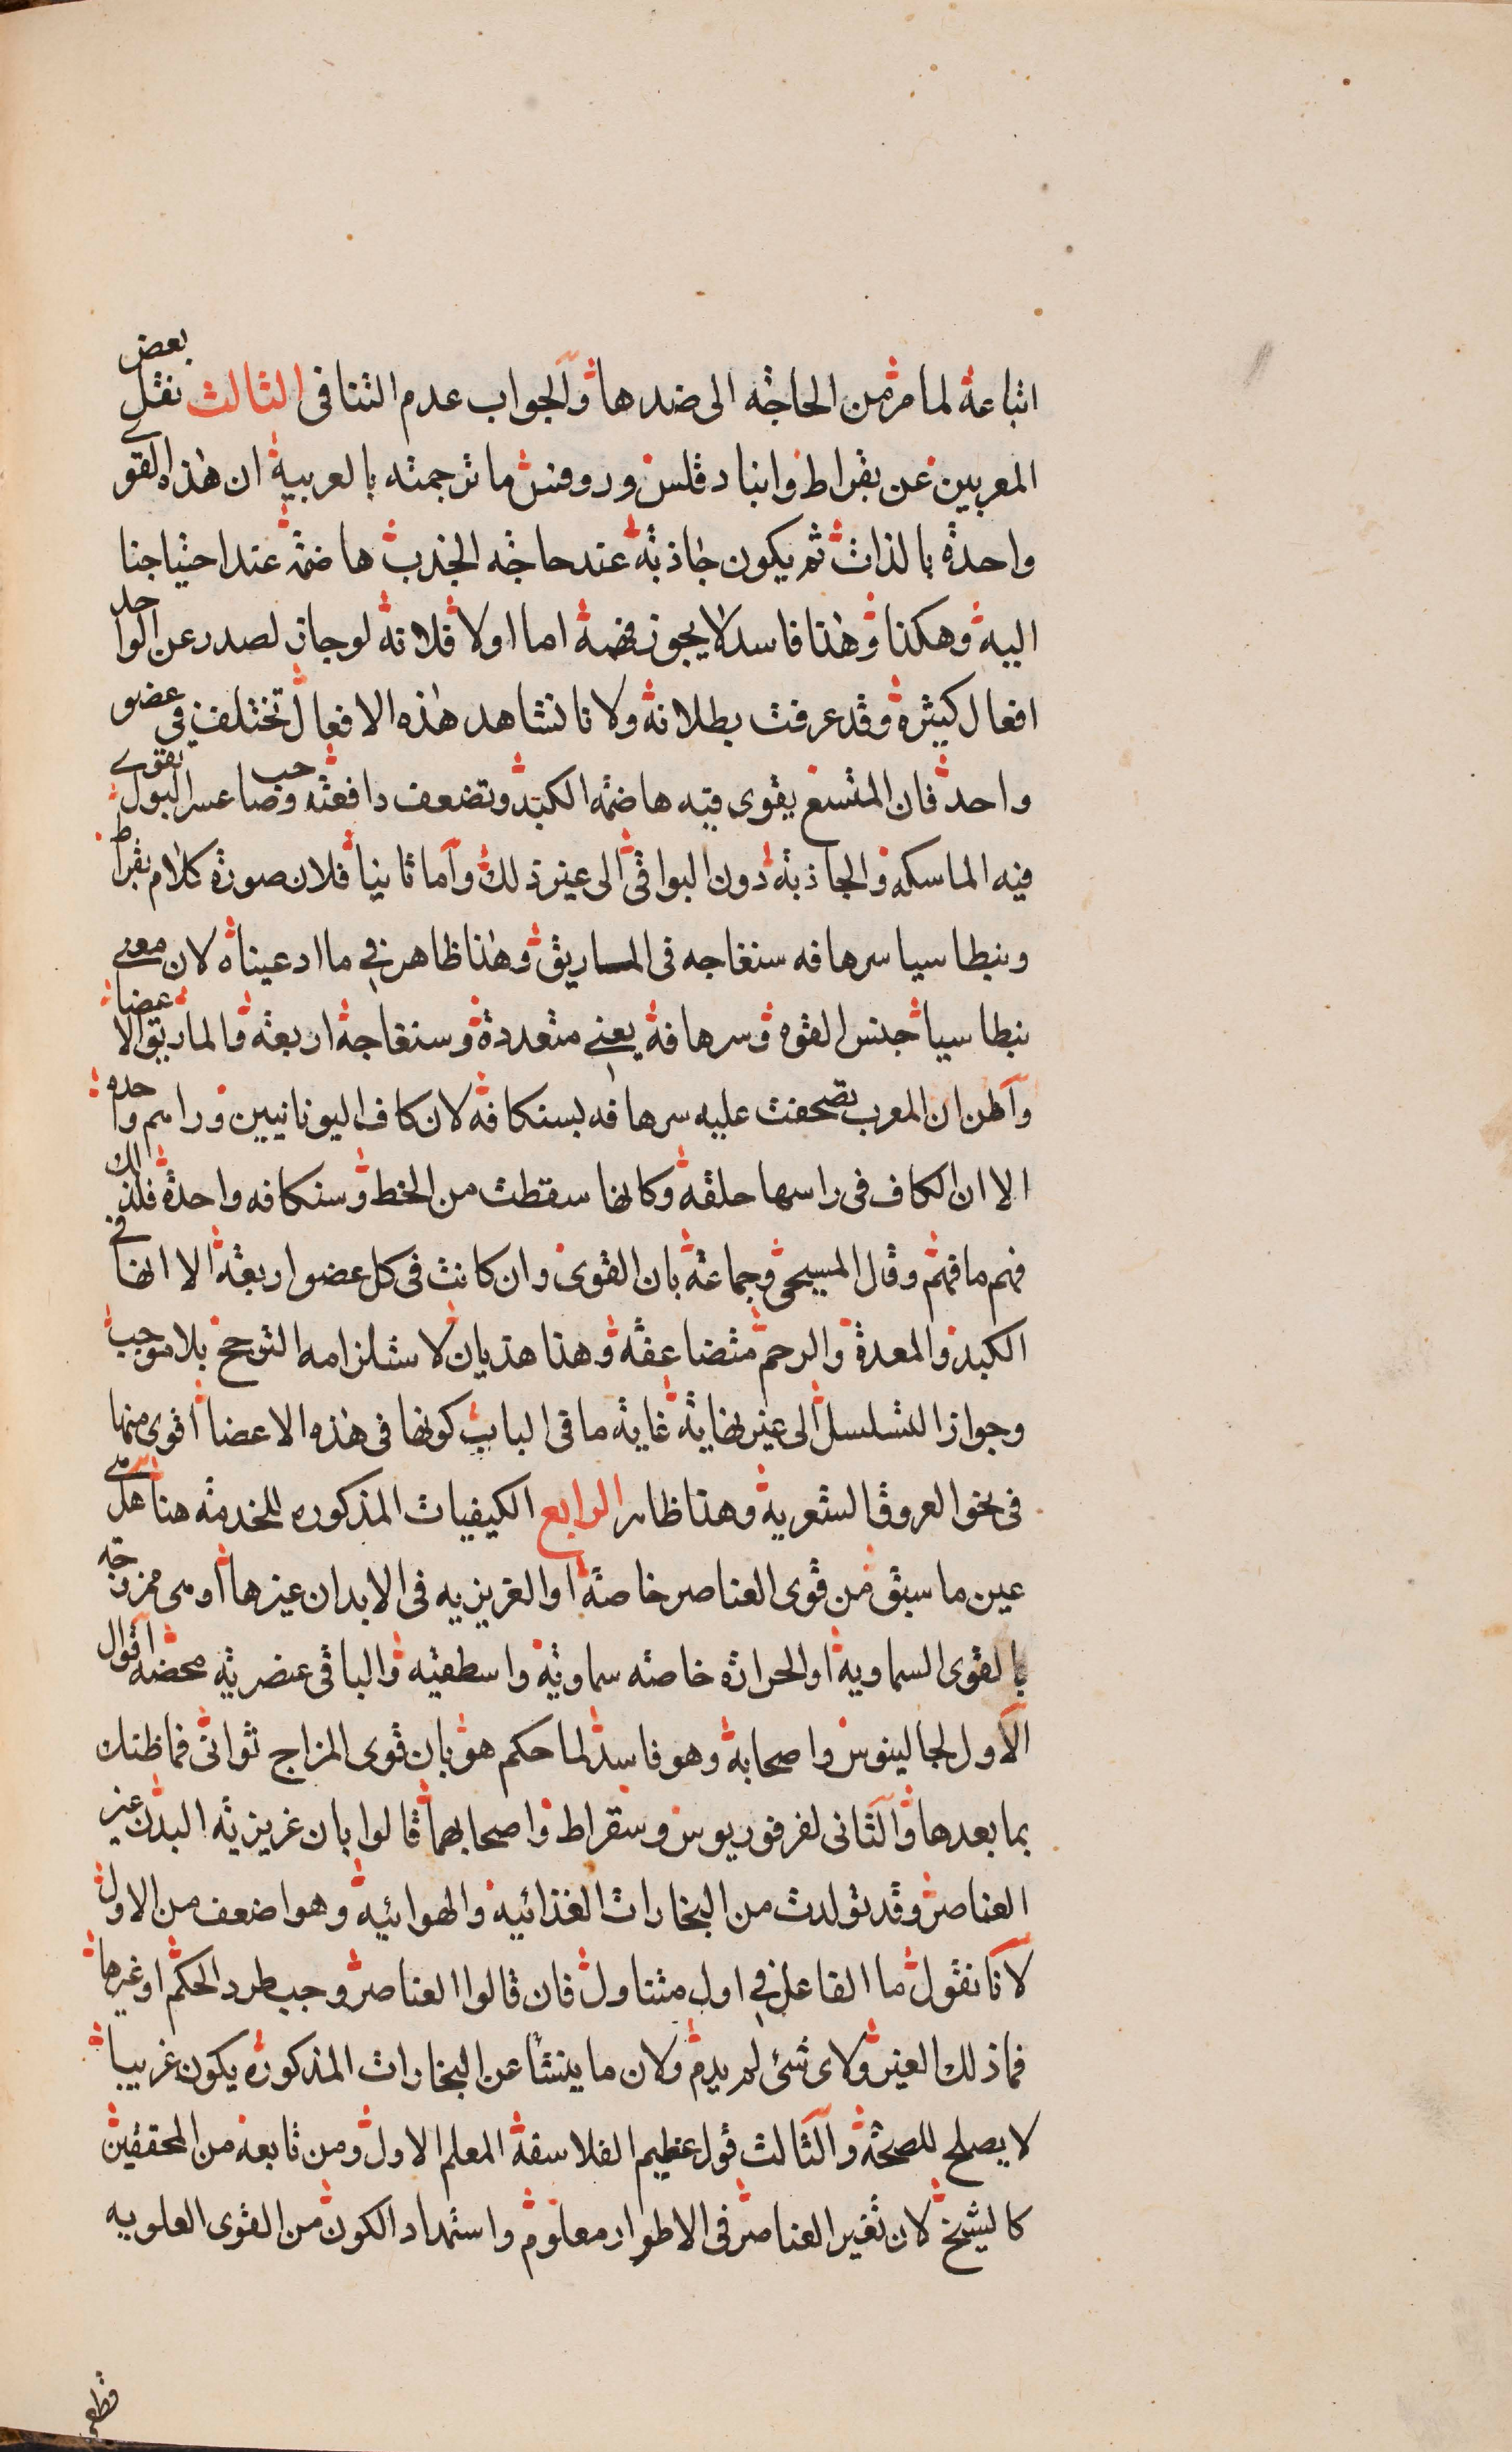 اتباعة لما مر من الحاجة الى ضدها والجواب عدم التنافى الثالث نقل بعض
المعربين عن بقراط وانبادقلس وروفس ما ترجمته بالعربية ان هذه القوى
واحدة بالذات ثم يكون جاذبة عند حاجة الجذب هاضمة عند احتياجنا
اليه وهكذا وهذا فاسد لا يجوز فهمه اما اولا فلانه لو جاز لصدر عن الواحد
افعال كثيرة وقد عرفت بطلانه ولانا نشاهد هذه الافعال تختلف فى عضو
واحد فان المتسع يقوى فيه هاضمة الكبد وتضعف دافعته وصاحب عسر البول تقوى
فيه الماسكة والجاذبة دون البواقى الى غير ذلك وآما ثانيا فلان صورة كلام بقراط
ونبطاسيا سرهافه سنغاجه فى الماريق وهذا ظاهر فى ما ادعيناه لان معنى
نبطاسيا جنس القوه وسرهافة يعنى متعددة وسنغاجة اربعة والماريق الاعضا
وآظن ان المعرب تصحفت عليه سرهافه بسنكافه لان كاف اليونانيين ورا مم واحده
الا ان الكاف فى راسها حلقة وكانها سقطت من الخط وسنكافه واحدة فلذالك
فهم ما فهم وقال المسيحى وجماعة بان القوى وان كانت فى كل عضو اربعة الا انها فى
الكبد والمعدة والرحم متضاعفة وهذا هذيان لاستلزامه الترجح بلا موجب
وجواز التسلسل الى غير نهاية غاية ما فى الباب كونها فى هذه الاعضا اقوى منها
فى نحو العروق الشعرية وهذا ظاهر الرابع الكيفيات المذكوره للخدمة هنا هل هى
عين ما سبق من قوى العناصر خاصة او الغريزيه فى الابدان غيرها او هى ممزوجة
بالقوى السماوية او الحرارة خاصه سماوية واسطقيه والباقى عنصريه محضة اقوال
الآول لجالينوس واصحابة وهو فاسد لما حكم هو بان قوى المزاج ثوانى فما ظنك
بما بعدها والثانى لفرفوريوس وسقراط واصحابهما قالوا بان غريزيه البدن غير
العناصر وقد تولدت من البخارات الغذائية والهوائيه وهو اضعف من الاول
لآنا نقول ما الفاعل فى اول متناول فان قالوا العناصر وجب طرد الحكم او غيرها
فما ذلك الغير ولاى شئ لم يدم ولان ما ينشأ عن البخارات المذكوره يكون غريبا
لا يصلح للصحة والثالث قول عظيم الفلاسفة المعلم الاول ومن تابعه من المحققين
كالشيخ لان تغير العناصر فى الاطوار معلوم واستمداد الكون من القوى العلويه
قطعى